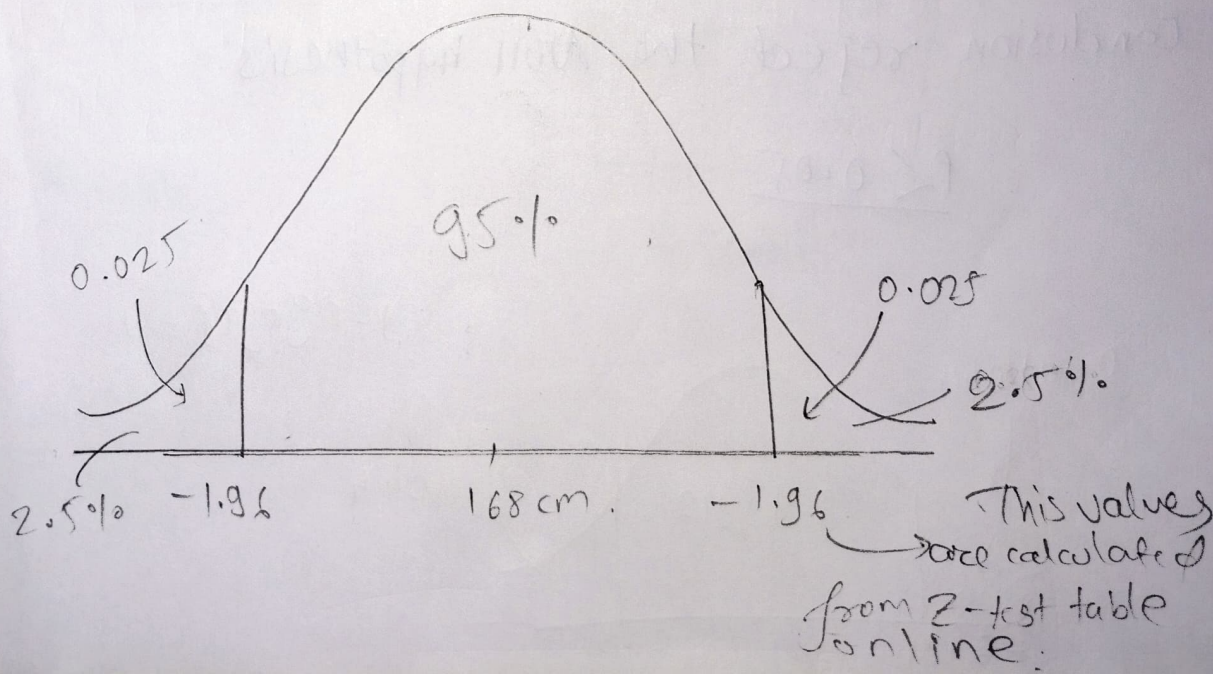 95%
0.025
0.025
2.5%
2.5%
-1.96
168 cm.
-1.96
This values
are calculated
from Z-test table
online.